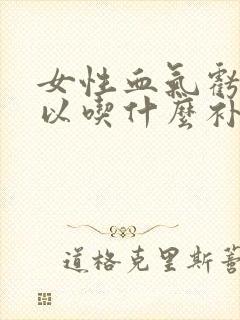 女性血气虧
以喫什麼补
道格克里斯蒂